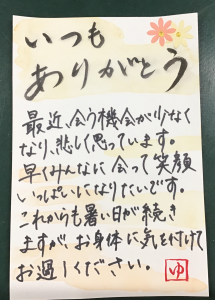 いつも
ありがとう
最近、会う機会が少なく
なり、悲しく思っています。
早くみんなに会って笑顔
いっぱいになりたいです。
これからも暑い日が続き
ますが、お身体に気を付けて
お過しください。
ゆ